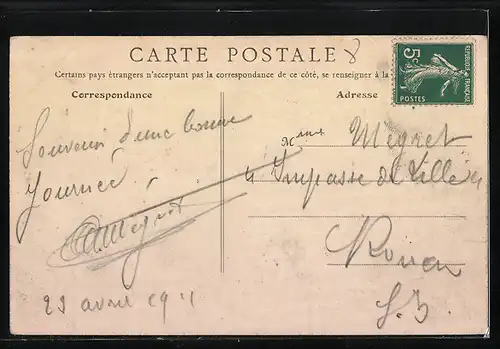 CARTE POSTALE
8
Certains pays étrangers n'acceptant pas la correspondance de ce côté, se renseigner à la
Correspondance
Adresse
5c
POSTES
REPUBLIQUE FRANÇAISE
Souvenir d'une bonne
Journée
23 avril 1911
Mme Mégret
4 Impasse de
Rouen
S. I.